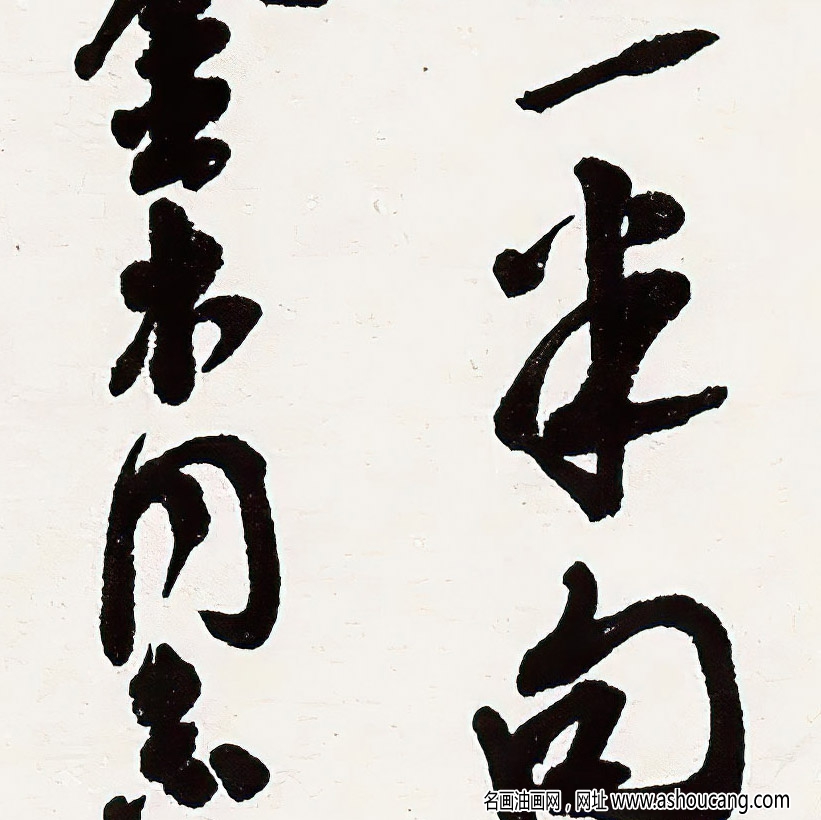 一半句
金木同志
名画油画网，网址 www.ashoucang.com